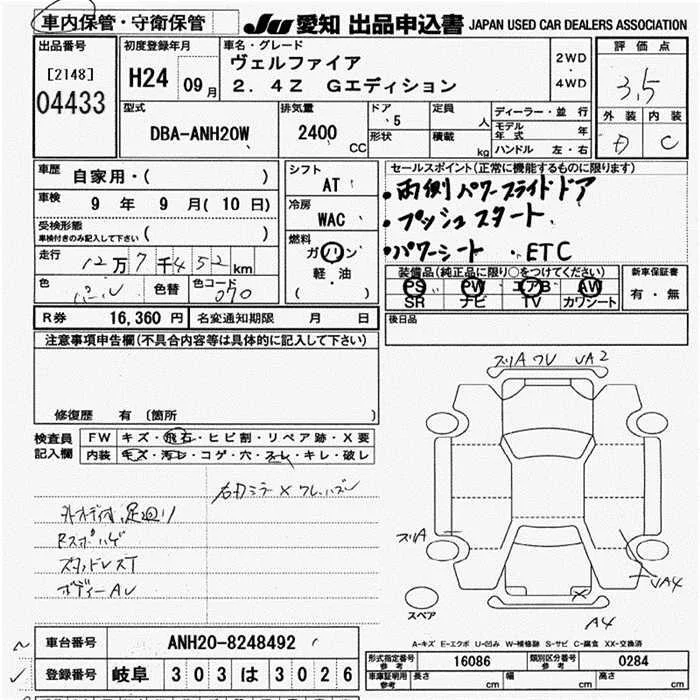 車内保管・守衛保管
JU 愛知 出品申込書 JAPAN USED CAR DEALERS ASSOCIATION
出品番号 [2148] 04433
初度登録年月 H24 09月
車名・グレード ヴェルファイア 2.4Z Gエディション
2WD・4WD
評価点 3.5
外装 D 内装 C
型式 DBA-ANH20W
排気量 2400 CC
ドア 5
形状
定員 人
積載 kg
ディーラー・並行
モデル年式 年
ハンドル 左・右
車歴 自家用・( )
車検 9年 9月(10日)
受検形態 車検付きのみ記入して下さい ( )
走行 12万7千452km
色 パール 色替 色コード 070
シフト AT
冷房 WAC
燃料 ガソリン 軽・油 ( )
セールスポイント(正常に機能するものに限ります)
・両側パワースライドドア
・プッシュスタート
・パワーシート ・ETC
装備品(純正品に限り○をつけてください)
PS PW エアB AW
SR ナビ TV カワシート
新車保証書 有・無
R券 16,360円 名変通知期限 月 日
後日品
注意事項申告欄(不具合内容等は具体的に記入して下さい)
修復歴 有 〔箇所 〕
検査員記入欄
FW キズ・飛石・ヒビ割・リペア跡・X要
内装 キズ・汚レ・コゲ・穴・スレ・キレ・破レ
右ドミラーX ワレ,ハズレ
足廻り
Rスポハゲ
ボディーAU
スリA ワレ UA2
スリA
UA4
X
A4
スペア
A-キズ E-エクボ U-凹み W-補修跡 S-サビ C-腐食 XX-交換済
車台番号 ANH20-8248492
登録番号 岐阜 303 は 3026
形式指定番号 参考 16086 類別区分番号 参考 0284
車庫証明用 参考 長さ cm 幅 cm 高さ cm